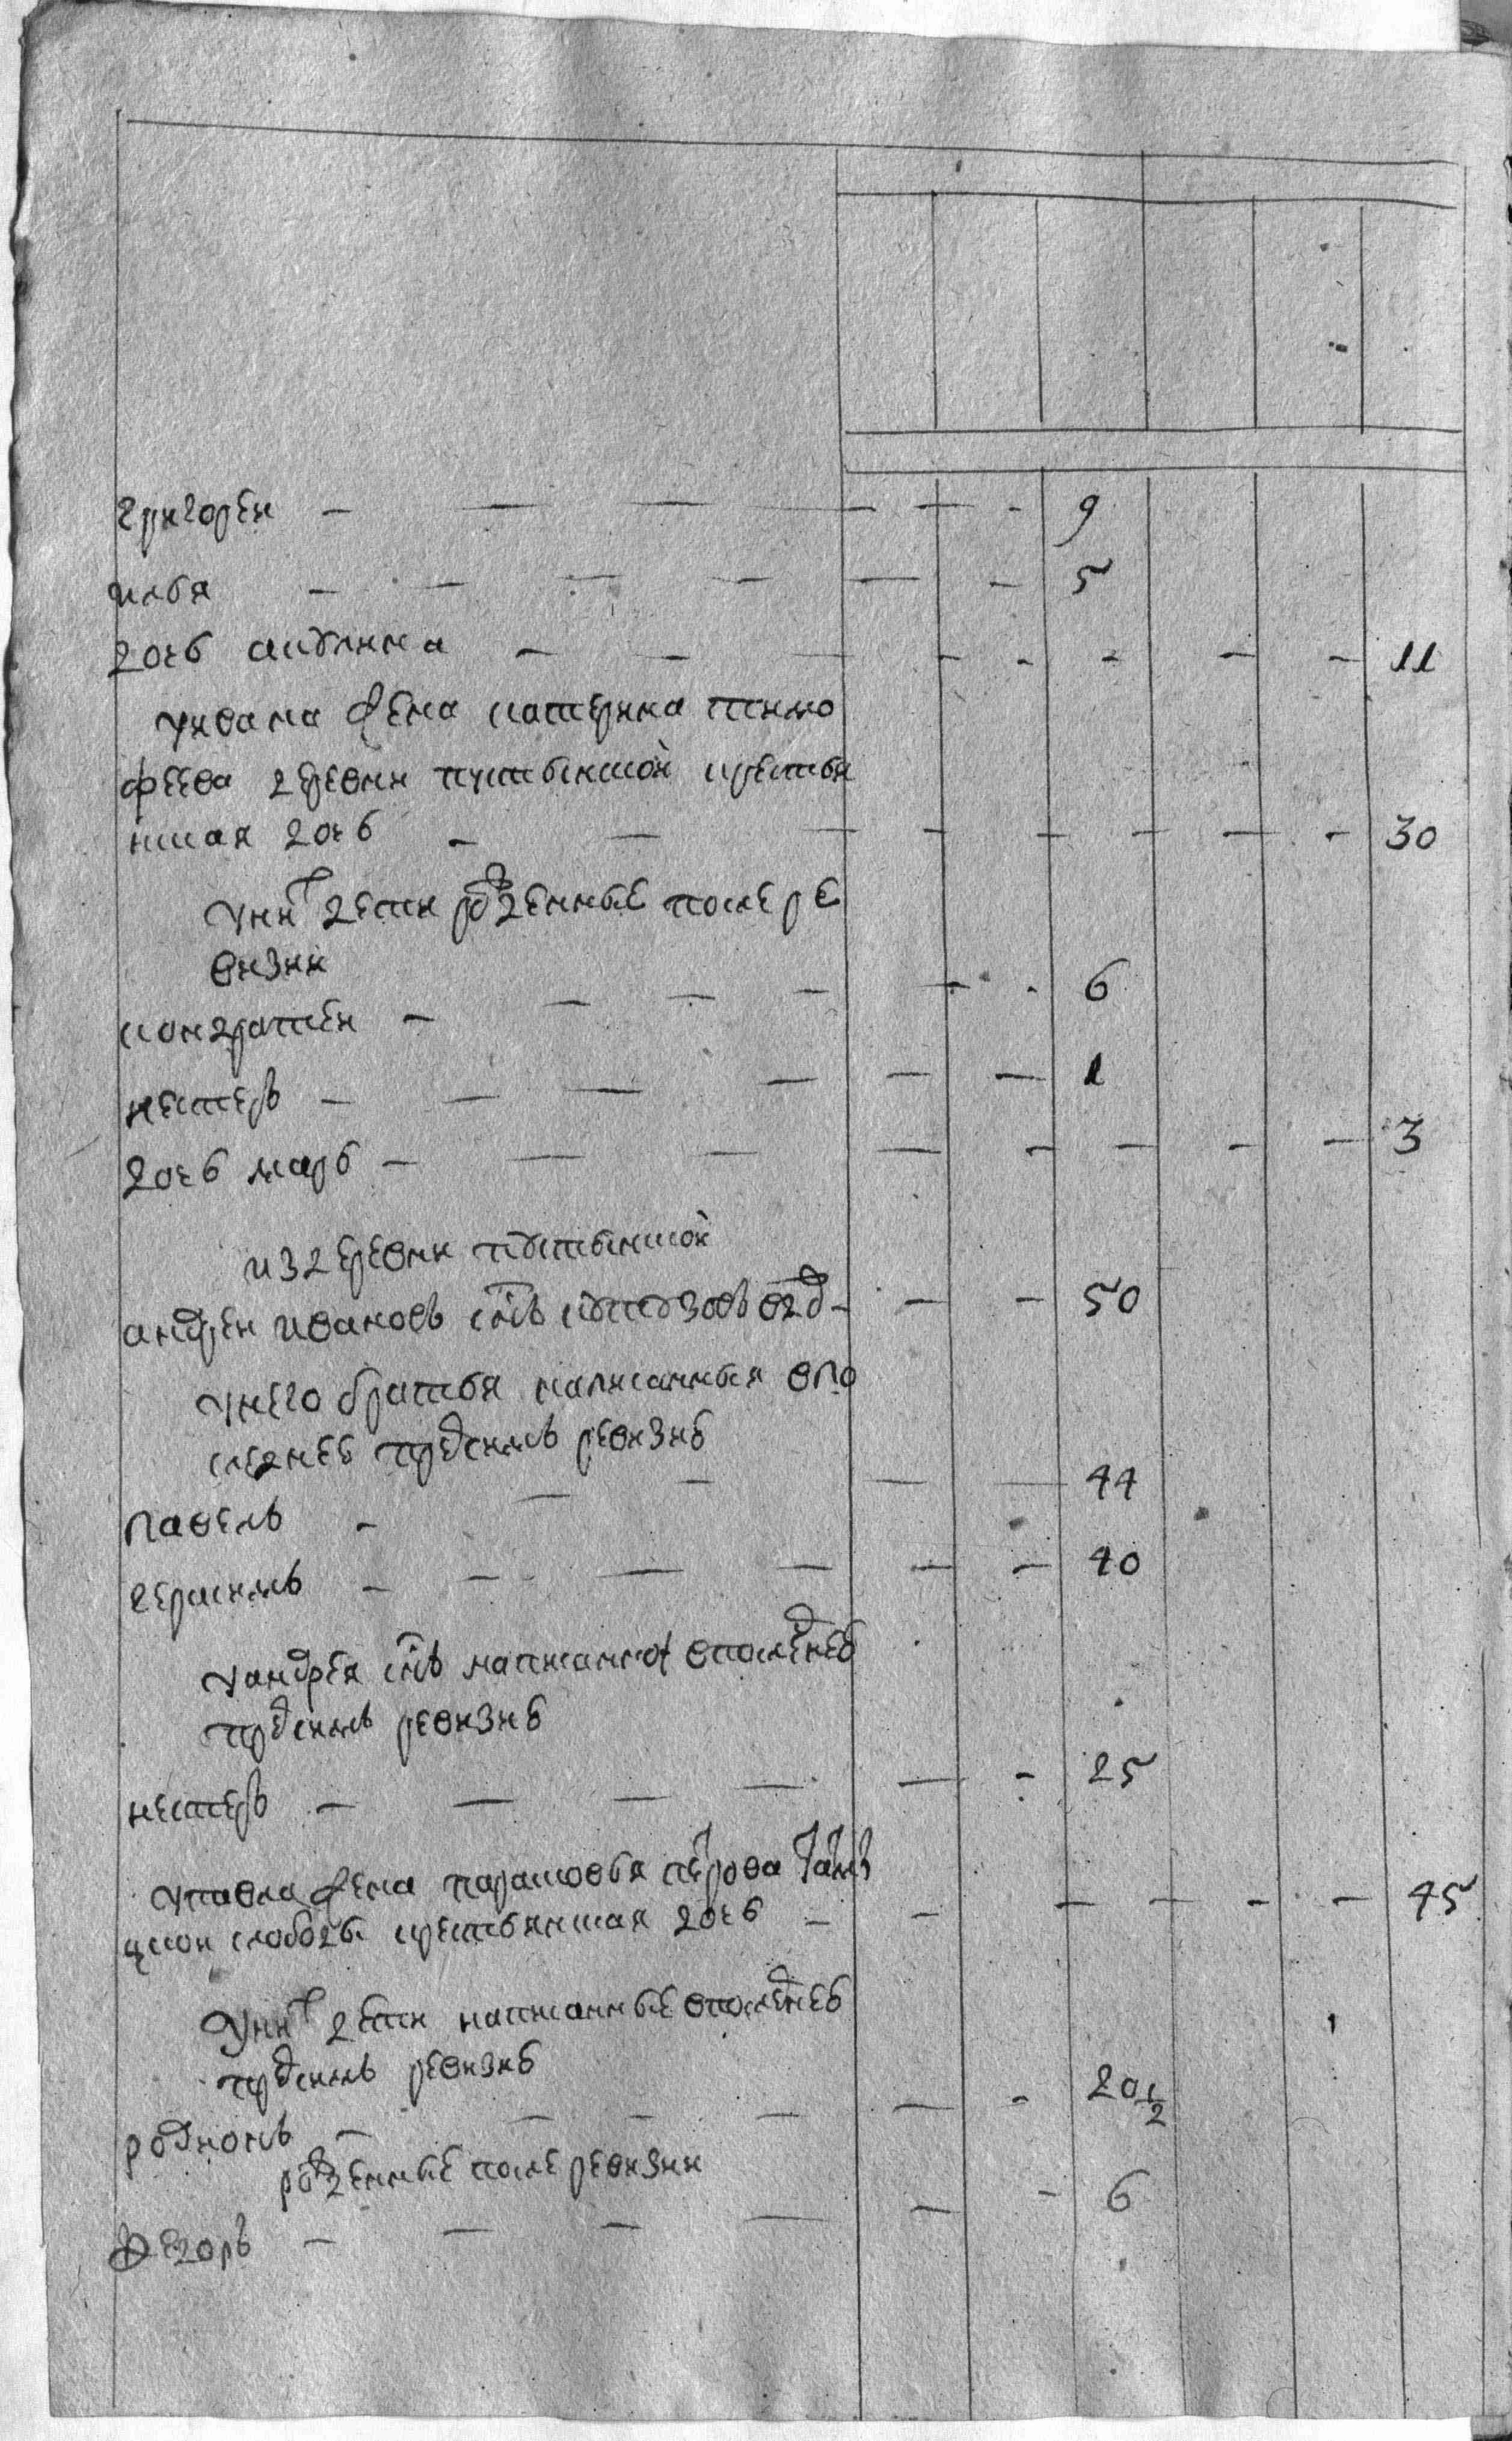 григореи — — — — — - 9
илья — — — — — - 5
дочь акулина — — — - - - — — 11
у ивана жена катерина тимо
феева деревни пустынкой крестья
нская дочь — — — — — — — - 30
у них дети рожденные после ре
визии
кондратеи — — — — — - 6
нестеръ — — — — — — 1
дочь марь — — — — - — - — 3
из деревни пустынской
андреи ивановъ снъ вдо - — — 50
у него братья написанныя в по
следнеь пред симъ ревизиь
павелъ - — — — — 44
герасимъ — — — — — — 40
у андрея снъ написанной в последнеь
пред симъ ревизиь
нестеръ — — — — — - 25
у павла жена парасковья петрова
цкои слободы крестьянская дочь — - — — - — 45
у них дети написанные в последнеь
пред симъ ревизиь
родионъ — — — — — - 20 1/2
рожденные после ревизии
федоръ — — — — — - 6